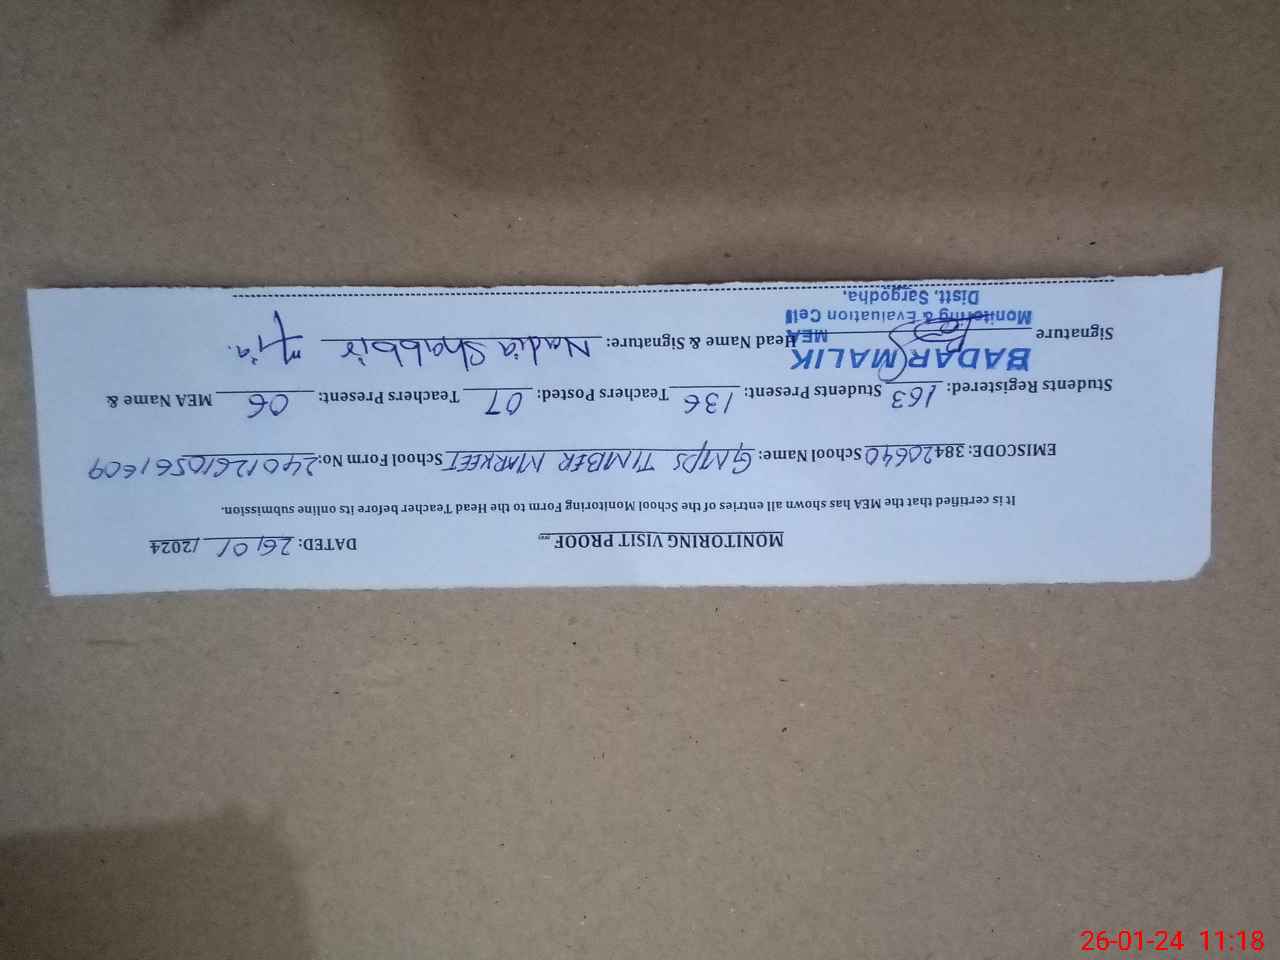 MONITORING VISIT PROOF DATED: 26/01/2024
It is certified that the MEA has shown all entries of the School Monitoring Form to the Head Teacher before its online submission.
EMISCODE: 38420640 School Name: GMPS TIMBER MARKEET School Form No: 24012610561609
Students Registered: 163 Students Present: 136 Teachers Posted: 07 Teachers Present: 06 MEA Name &
BADAR MALIK
Signature Head Name & Signature: Nadia Shabbir
MEA
Monitoring & Evaluation Cell
Distt. Sargodha.
26-01-24 11:18